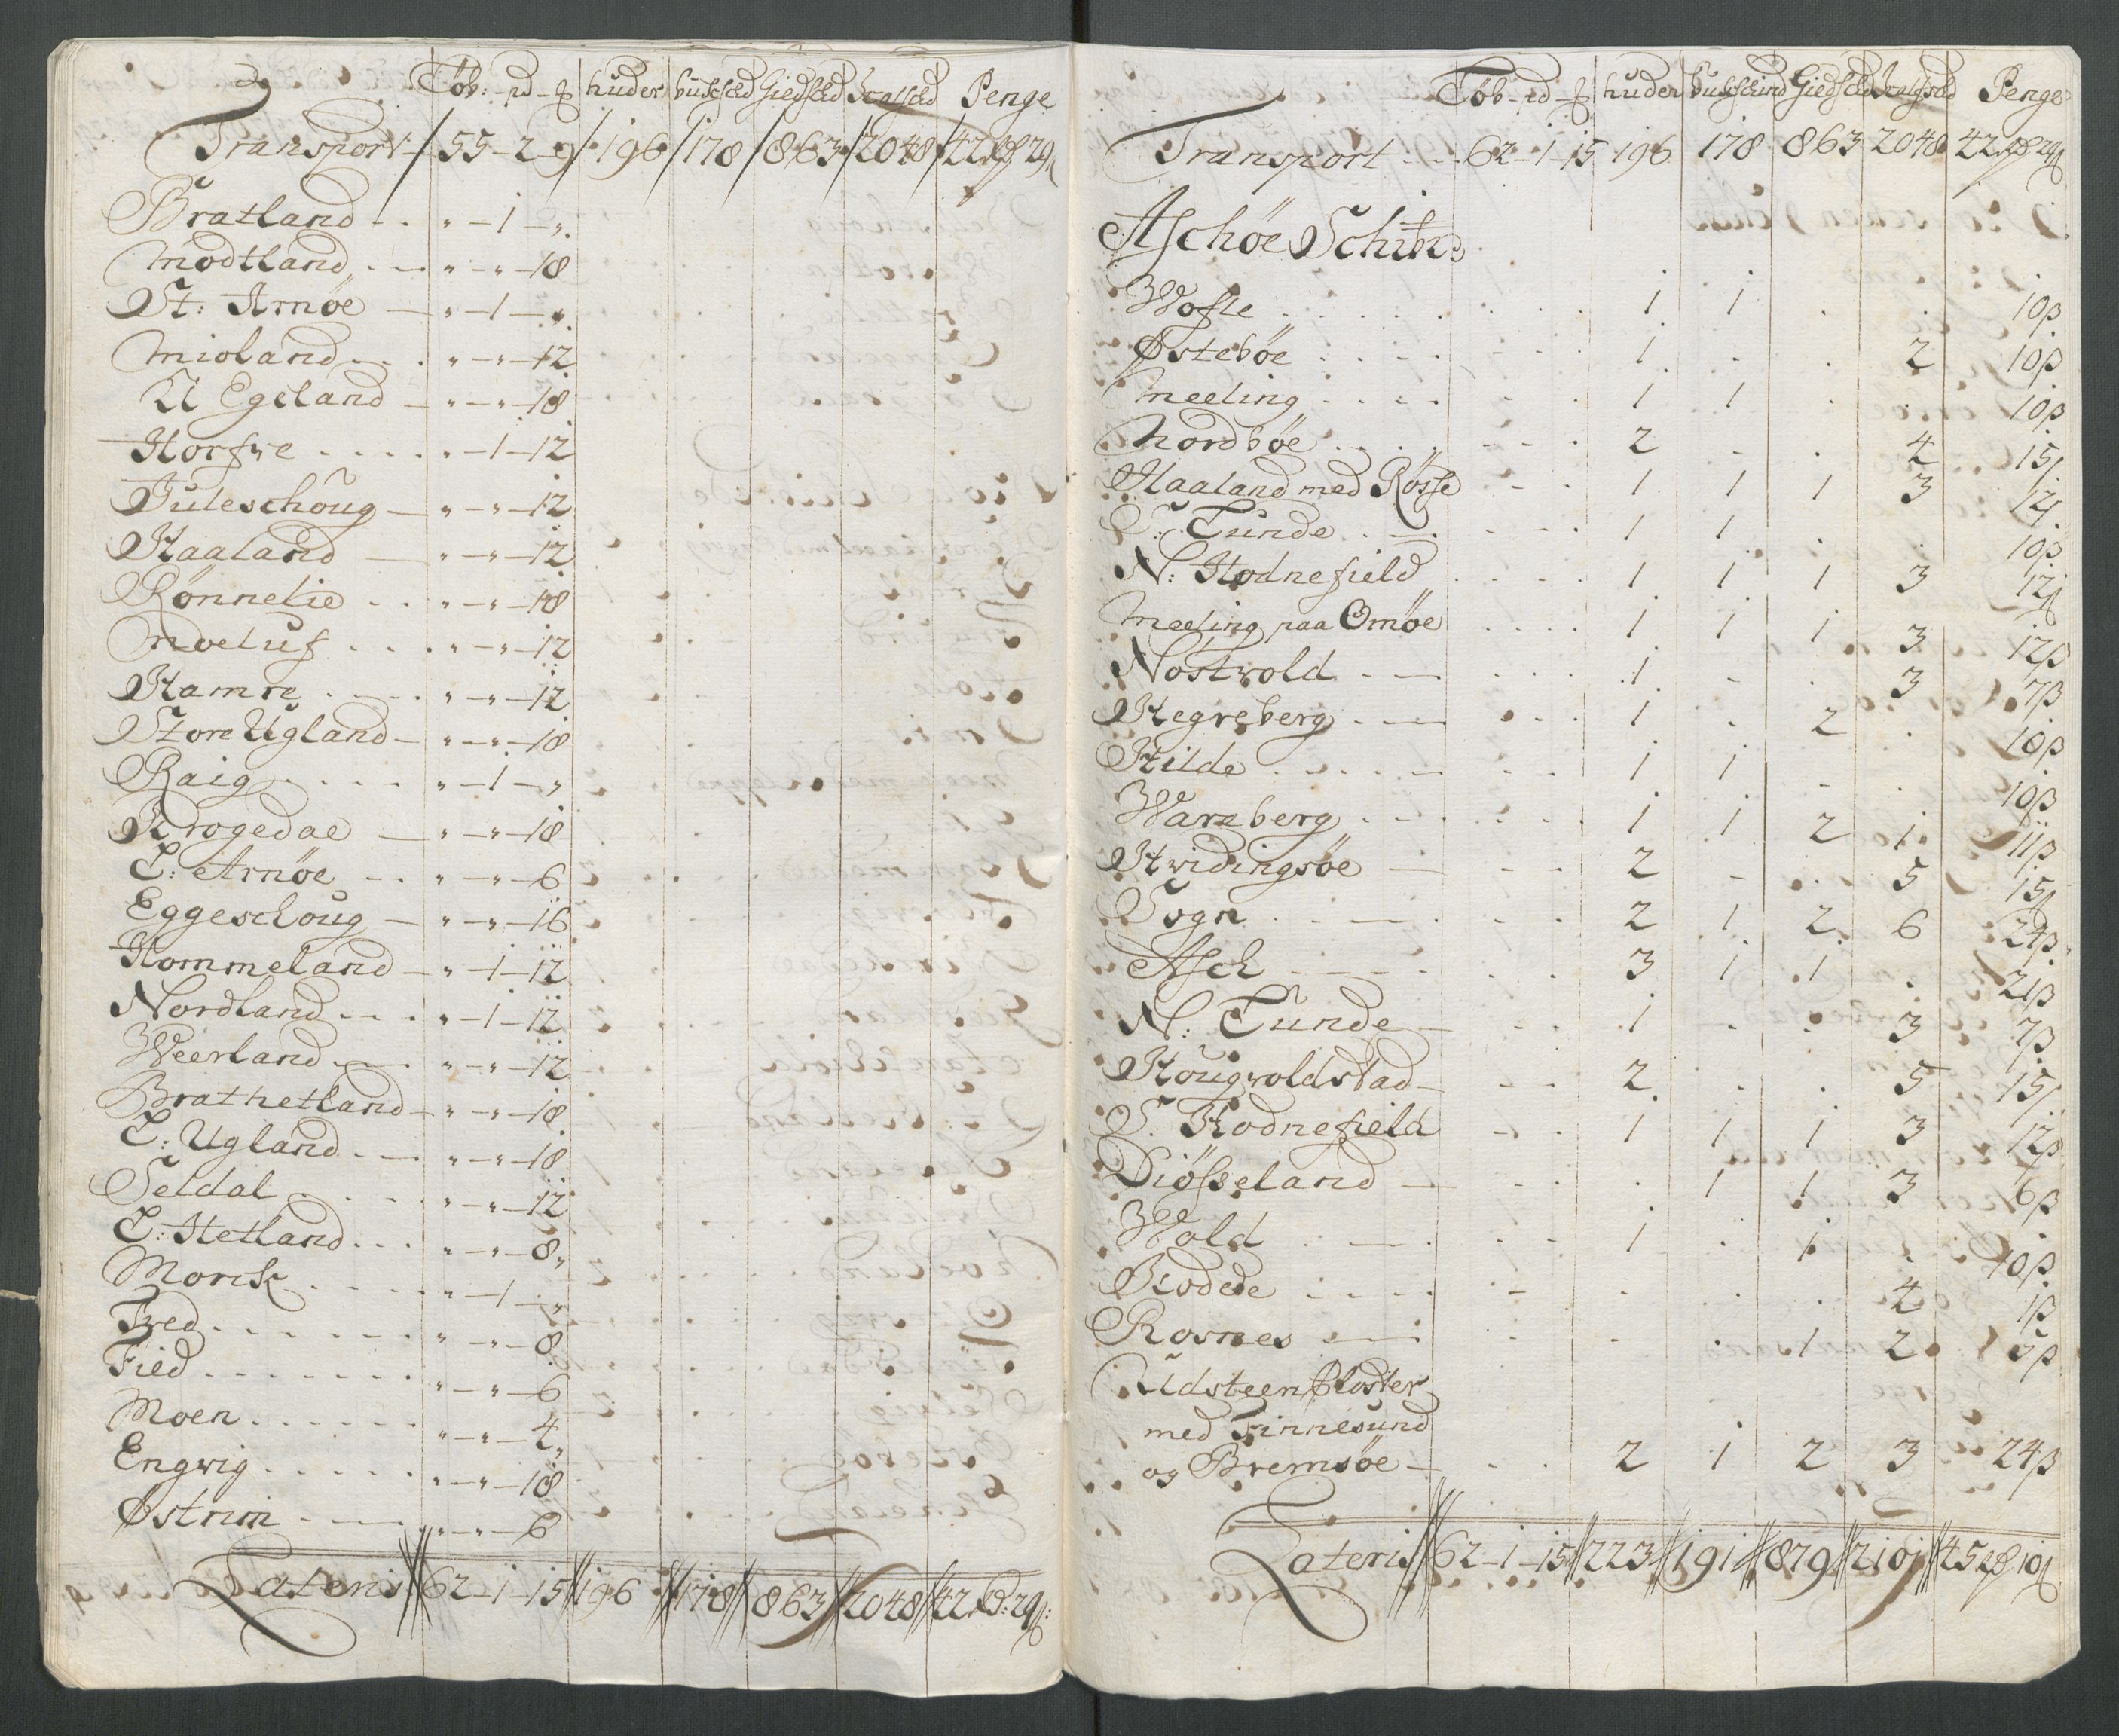 Tøb: - pd - huder buchsED Giedsed Penge
Transport 55 - 2 - 9 196 178 863 2048 42 29
Bratland - . " - 1 - "
Modtland . - " - " - 18
St: Arnøe - " - 1 - "
Mioland - . " - " - 12
U Egeland - " - " - 18
Horfve . . . . " - 1 - 12
Juleschoug - " - " - 12
Haaland - " - " - 12
Rønnelie . . " - " - 18
Moeluf . . . " - " - 12
Hamre . - " - " - 12
Store Ugland - " - " - 18
Raig . . . . " - 1 - "
Krogedae - " - " - 18
L: Arnøe - . " - " - 6
Eggeschoug - " - " - 16
Hommeland - " - 1 - 12
Nordland - . " - 1 - 12
Weerland - " - " - 12
Brathetland - " - " - 18
L: Ugland . - " - " - 18
Seldal . . . . " - " - 12
L: Hetland . . . " - " - 8
Morck . . . . " - 1 - "
Tved . . . . . . " - " - 8
Field . . . . . . " - " - 6
Moen . . . . . " - " - 4
Engvig . . . . . " - " - 18
Østrim - . - " - " - 6
Lateris 62 - 1 - 15 196 178 863 2048 42 : 29
Tøb - pd - huder buchschind Giedsed Penge
Transport . . 62 - 1 - 15 196 178 863 2048 42 29
Aschøe Schibr:
Wosle . . . . . 1 1 . . 10β
Østebøe . . . - 1 . . 2 10β
Meeling . . . . 1 1 . . 10β
Nordbøe . . . . 2 . . 4 15β
Haaland med Rösse - - 1 1 1 3 12β
S: Tunde . - - - . 1 1 . . 10β
N: Hodnefield . . . . 1 1 1 3 12β
Meeling paa Omøe . . . . 1 1 1 3 12β
Nostvold . - . . . 1 . . 3 7β
Hegreberg . - . . 1 . 2 . 10β
Hilde . . . . - - 1 1 . . 10β
Warzberg . . . . 1 1 2 1 11β
Hvidingsøe - - - 2 . . 5 15β
Sogn . . - . - - 2 1 2 6 24β
Asch - - - . . 3 1 1 . 21β
N: Tunde - . . 1 . . 3 7β
Hougvoldstad - - - 2 . . 5 15β
S. Hodnefield - - 1 1 1 3 12β
Diösseland - . . . 1 1 3 6β
Wold . - . - - 1 . 1 . 10β
Bodede . . . . - . . . 4 1β
Rosnes . - . . . . . 1 2 5β
Udsteen Closter
med Finnesund
og Bremsøe - . . 2 1 2 3 24β
Lateris 62 - 1 - 15 223 191 879 2101 45 10